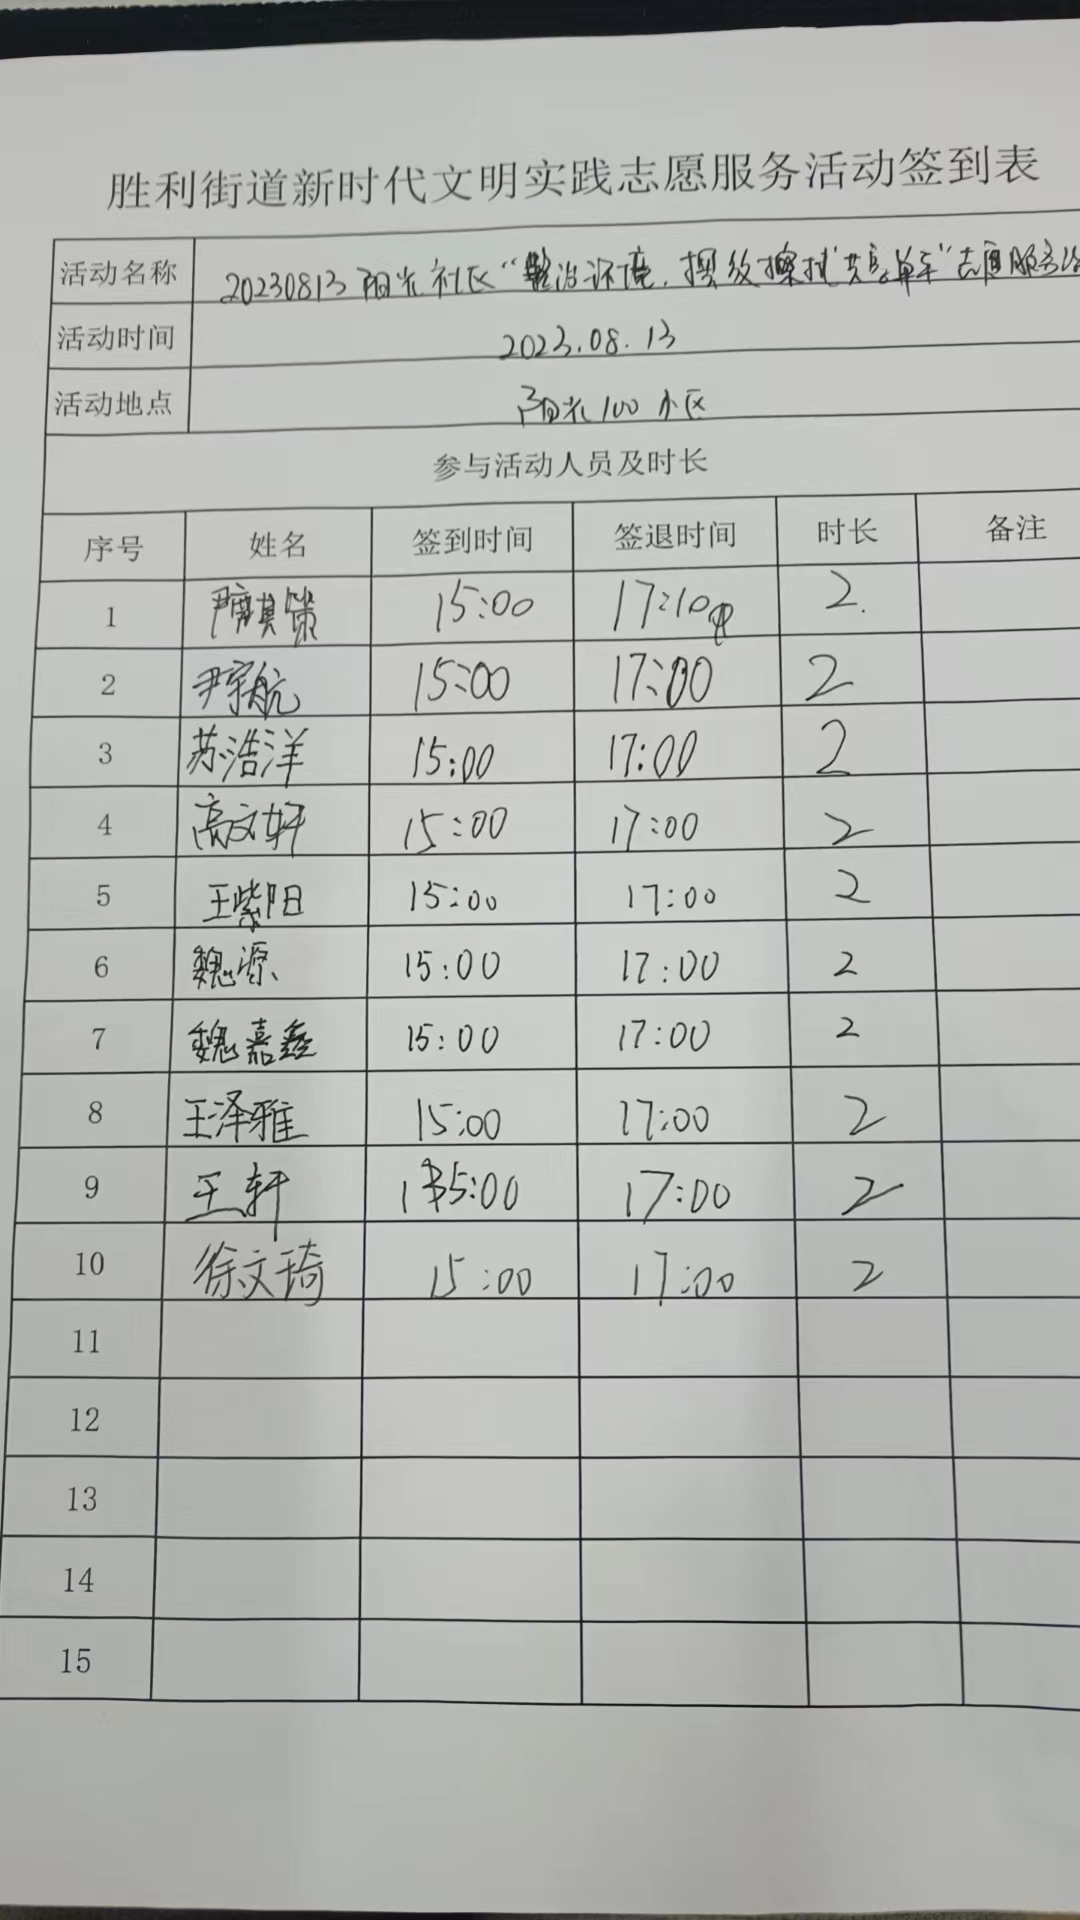 胜利街道新时代文明实践志愿服务活动签到表
活动名称 20230813阳光社区“整治环境，摆放擦拭共享单车”志愿服务活
活动时间 2023.08.13
活动地点 阳光100小区
参与活动人员及时长
序号 姓名 签到时间 签退时间 时长 备注
1 15:00 17:10 2.
2 尹宇航 15:00 17:00 2
3 苏浩洋 15:00 17:00 2
4 高文轩 15:00 17:00 2
5 王紫阳 15:00 17:00 2
6 魏源 15:00 17:00 2
7 魏嘉鑫 15:00 17:00 2
8 王泽雅 15:00 17:00 2
9 王轩 15:00 17:00 2
10 徐文琦 15:00 17:00 2
11
12
13
14
15